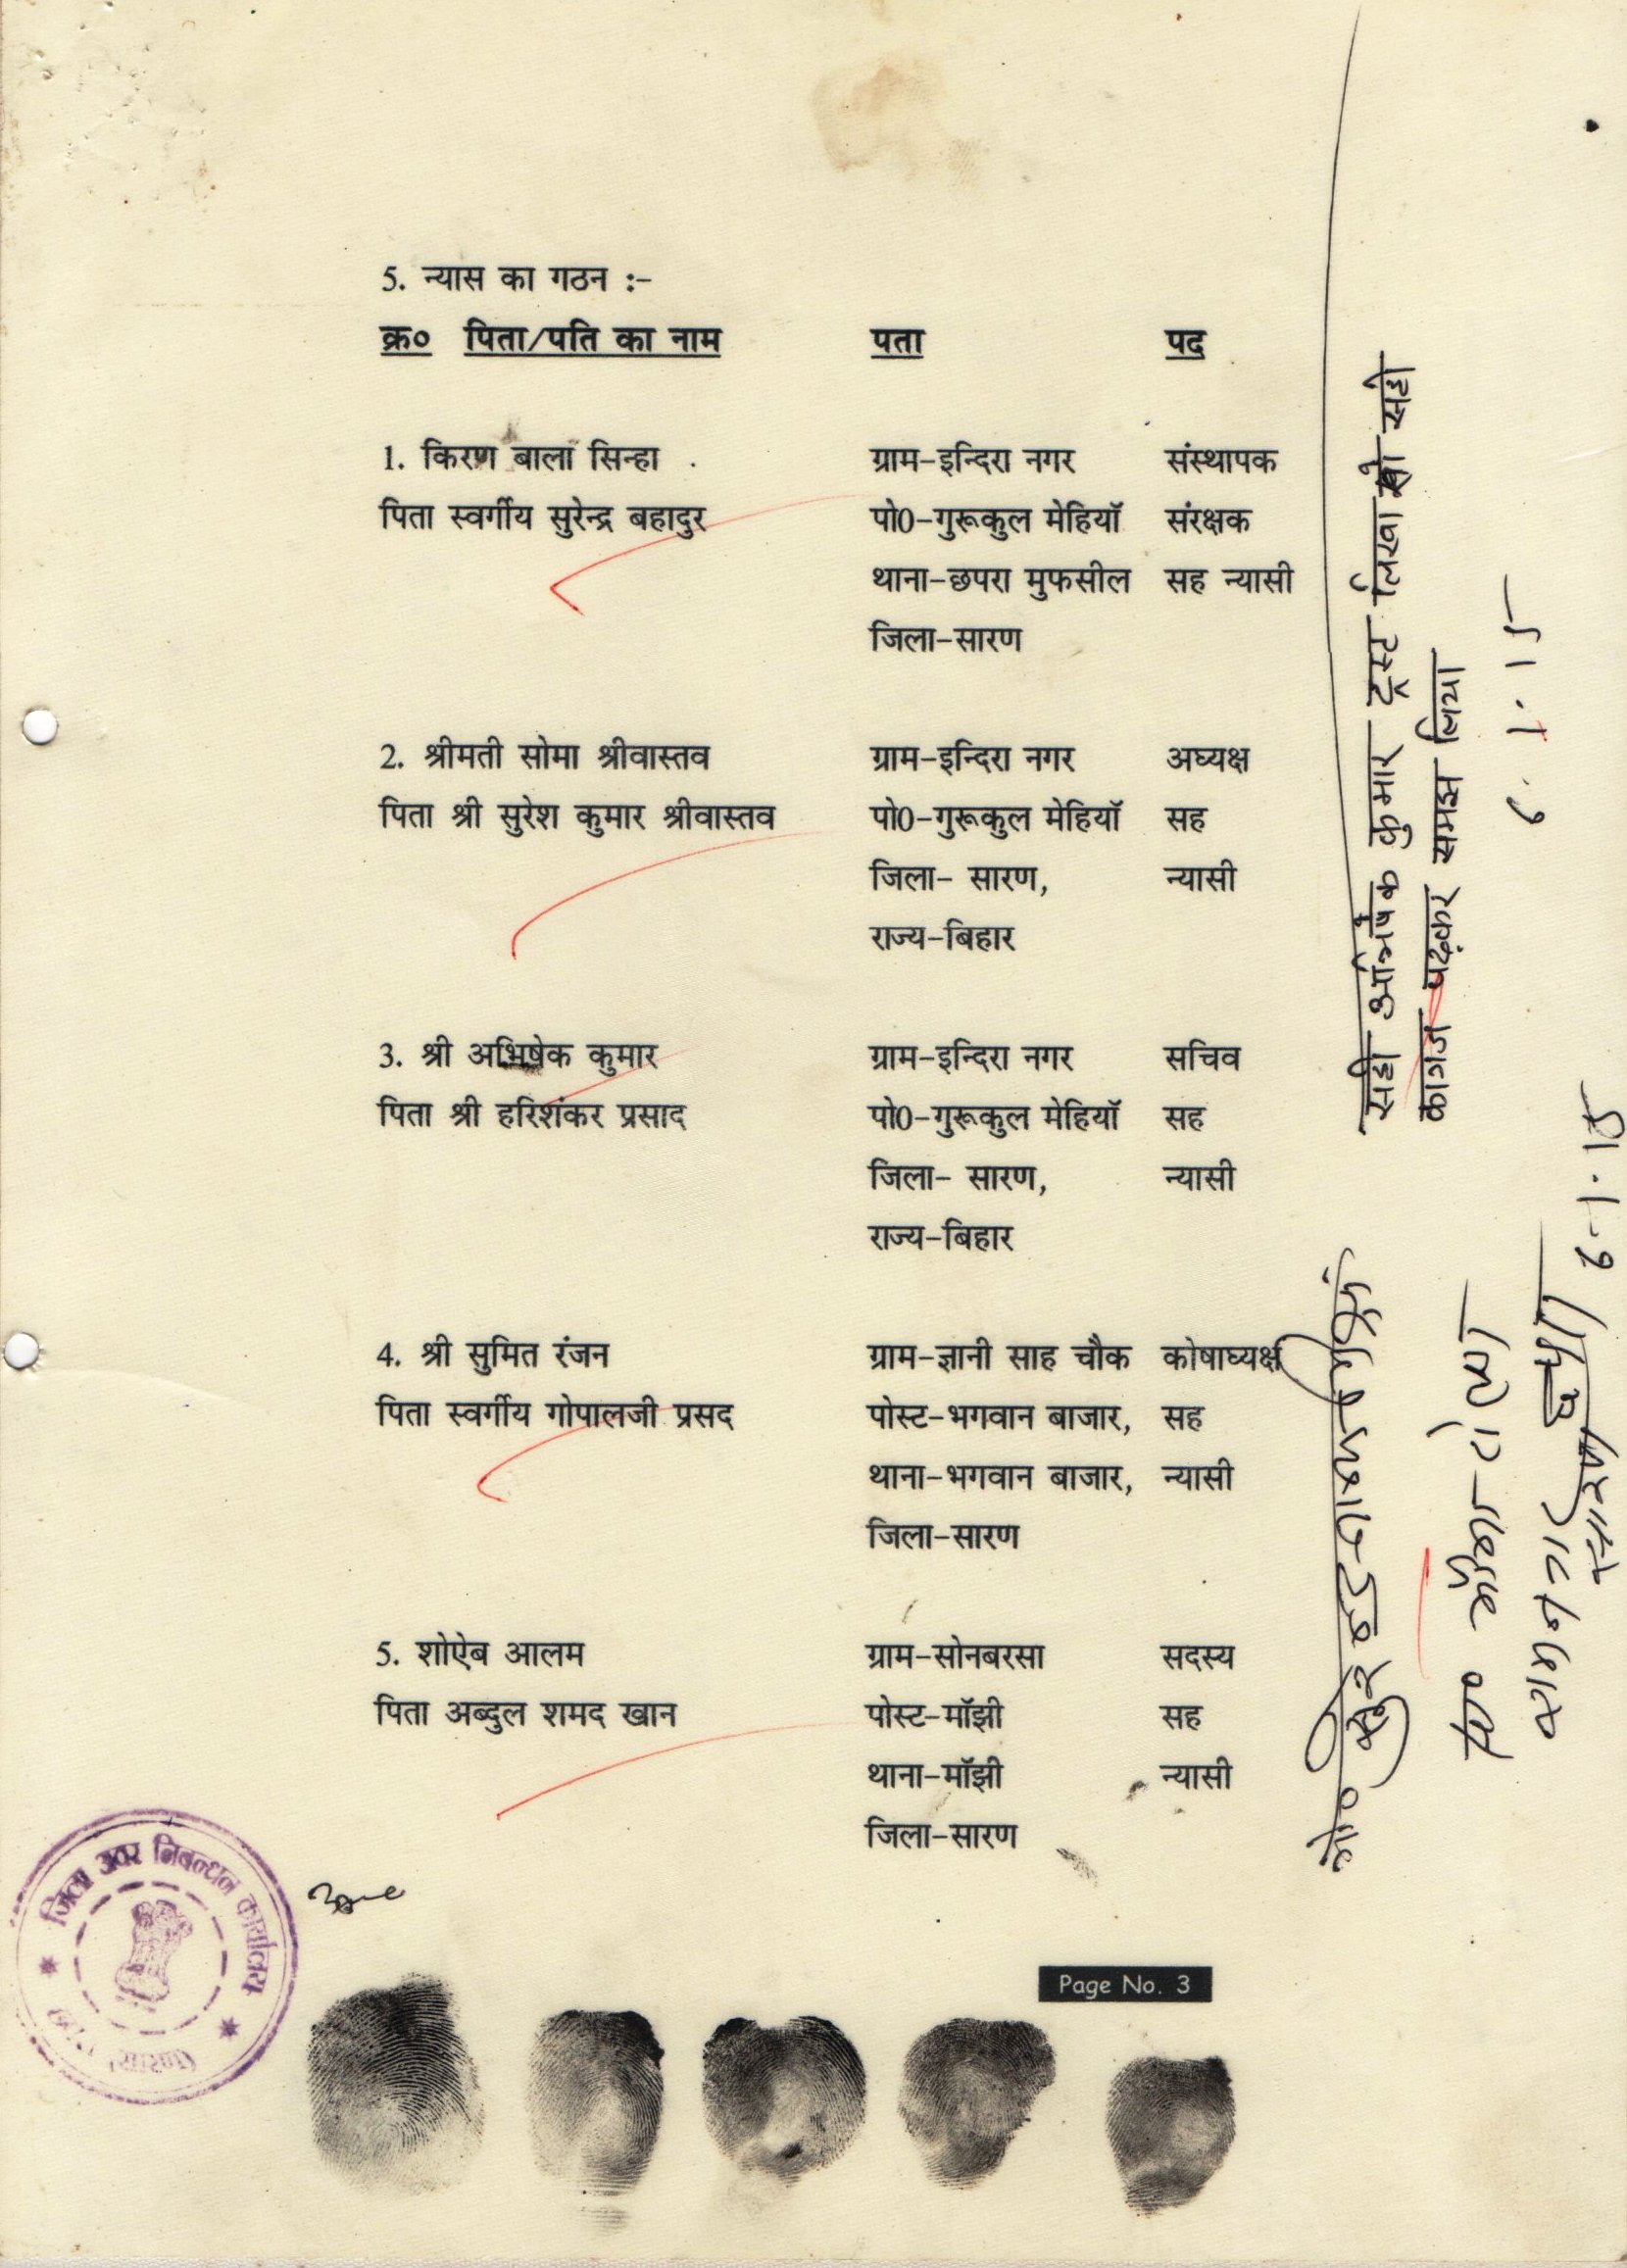 5. न्यास का गठन :-
क्र० पिता/पति का नाम पता पद
1. किरण बाला सिन्हा ग्राम-इन्दिरा नगर संस्थापक
पिता स्वर्गीय सुरेन्द्र बहादुर पो0-गुरूकुल मेहियॉ संरक्षक
थाना-छपरा मुफसील सह न्यासी
जिला-सारण
2. श्रीमती सोमा श्रीवास्तव ग्राम-इन्दिरा नगर अघ्यक्ष
पिता श्री सुरेश कुमार श्रीवास्तव पो0-गुरूकुल मेहियॉ सह
जिला- सारण, न्यासी
राज्य-बिहार
3. श्री अभिषेक कुमार ग्राम-इन्दिरा नगर सचिव
पिता श्री हरिशंकर प्रसाद पो0-गुरूकुल मेहियॉ सह
जिला- सारण, न्यासी
राज्य-बिहार
4. श्री सुमित रंजन ग्राम-ज्ञानी साह चौक कोषाघ्यक्ष
पिता स्वर्गीय गोपालजी प्रसद पोस्ट-भगवान बाजार, सह
थाना-भगवान बाजार, न्यासी
जिला-सारण
5. शोऐब आलम ग्राम-सोनबरसा सदस्य
पिता अब्दुल शमद खान पोस्ट-मॉझी सह
थाना-मॉझी न्यासी
जिला-सारण
Page No. 3
जिला अवर निबन्धन कार्यालय
सही अभिषेक कुमार ट्रस्ट लिखा सो सही
कागज पढ़कर समझ लिया
6.1.15
6.1.15